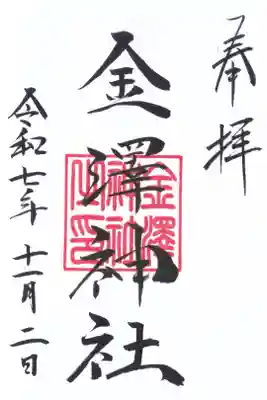 奉拝
金澤神社
金澤神社之印
令和七年 十一月 二日